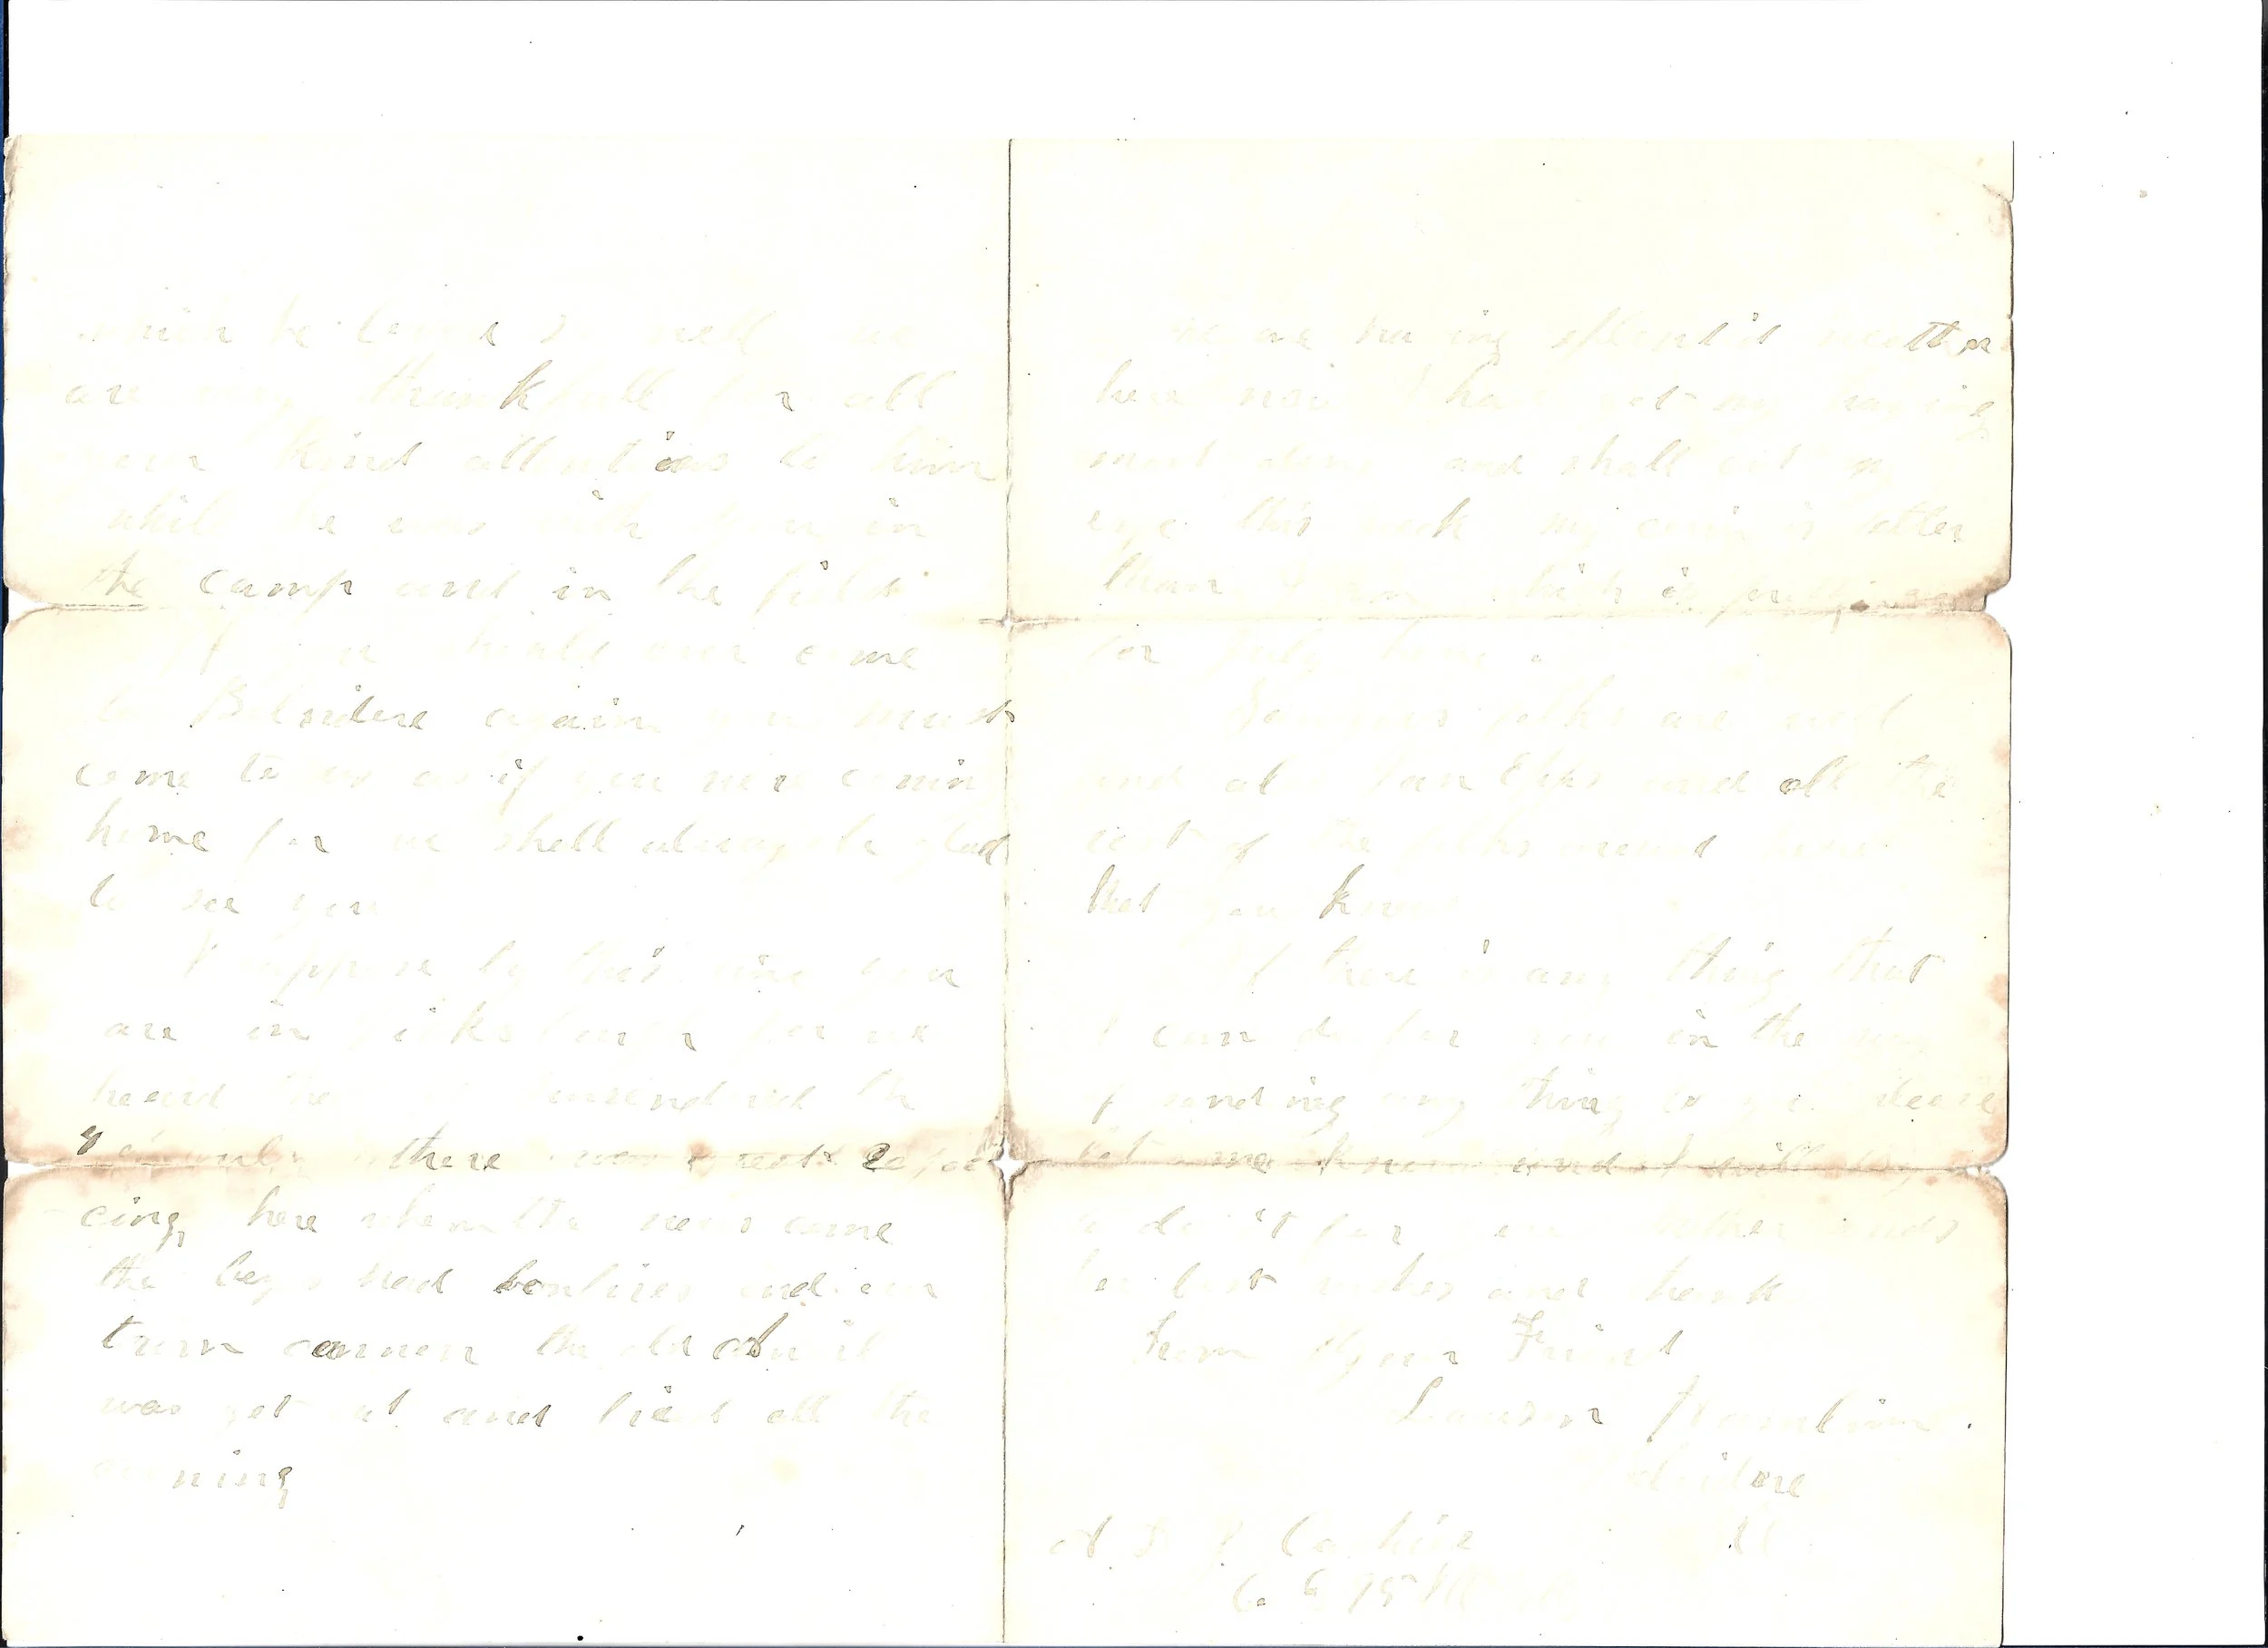 which he loved so well we
are very thankfull for all
your kind attentions to him
while he was with you in
the camp and in the field
If you should ever come
to Belvidere again you must
come to us as if you were comin
home for we shall always be glad
to see you
I suppose by this time you
are in Vicksburg for we
heard they surrendered the
there was great rejoi
cing here when the news came
the boys had bonfires and our
town cannon the old
was got out and fired all the
evening
We are having splendid weather
here now I have got my haying
most done and shall cut my
rye this week my corn is better
than which is
for
folks are well
and also Van Ettas and all the
rest of the folks around here
that you know
If there is any thing that
I can do for you in the way
of sending any thing to you please
let me know and I will try
to do it for you Mother sends
her best wishes and thank
from Your Friend
Lawson
Belvidere
Ill
Co 95 Ill